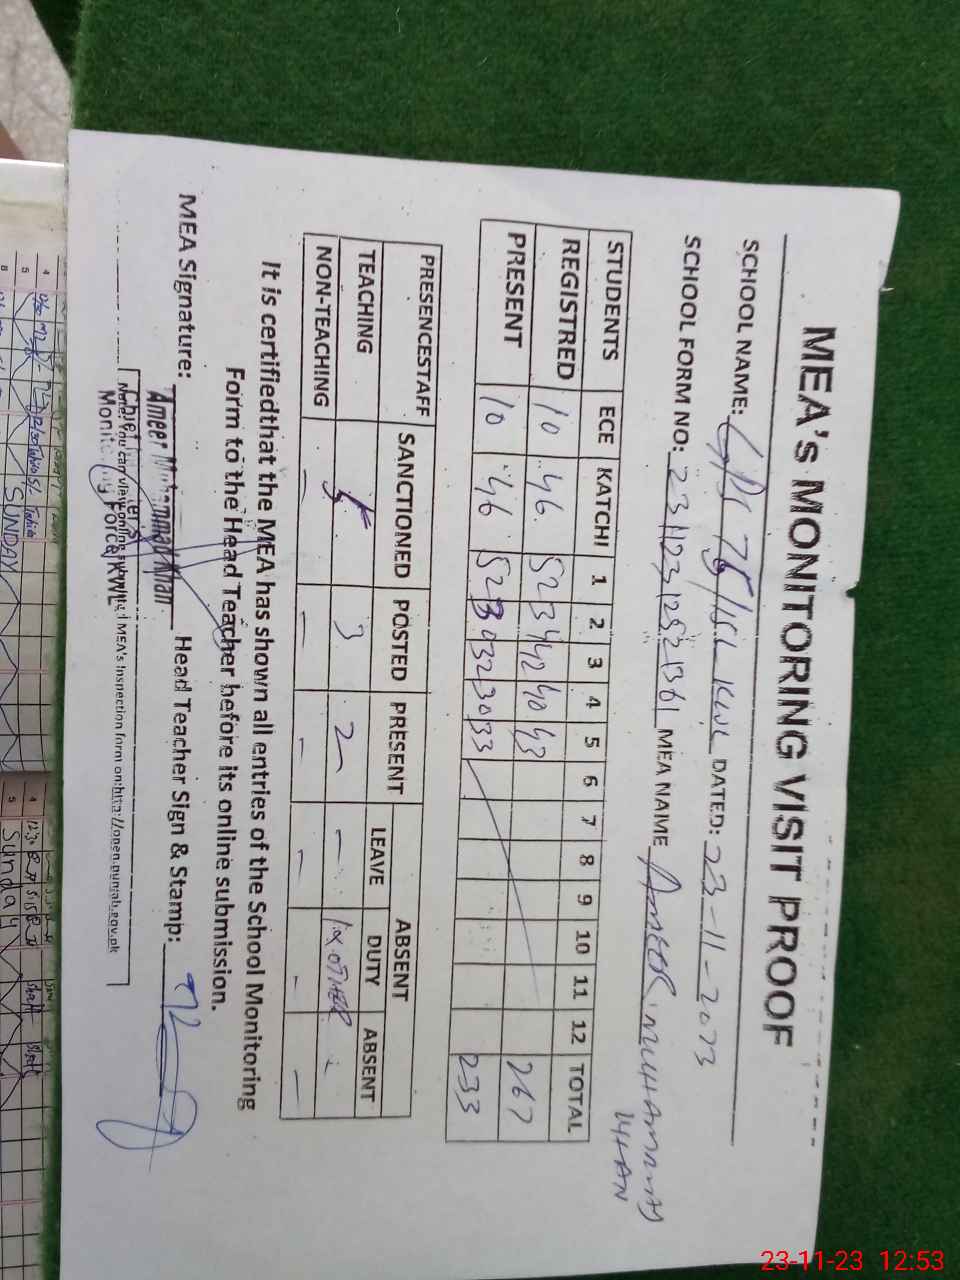 MEA's MONITORING VISIT PROOF
SCHOOL NAME: GPS 75/15L KWL DATED: 23-11-2023
SCHOOL FORM NO: MEA NAME AMEER MUHAMMAD
KHAN
STUDENTS ECE KATCHI 1 2 3 4 5 6 7 8 9 10 11 12 TOTAL
REGISTRED 10 46 52 34 42 40 43 267
PRESENT 10 46 52 30 32 30 33 233
PRESENCESTAFF SANCTIONED POSTED PRESENT ABSENT
LEAVE DUTY ABSENT
TEACHING 3 2 - OTHER
NON-TEACHING - - - - - -
It is certifiedthat the MEA has shown all entries of the School Monitoring
Form to the Head Teacher before its online submission.
MEA Signature: Head Teacher Sign & Stamp:
Ameer Muhammad Khan
Note: You can view online MEA's Inspection form on:http://open.punjab.gov.pk
Monitoring Force KWL
SUNDAY
Sunday
23-11-23 12:53